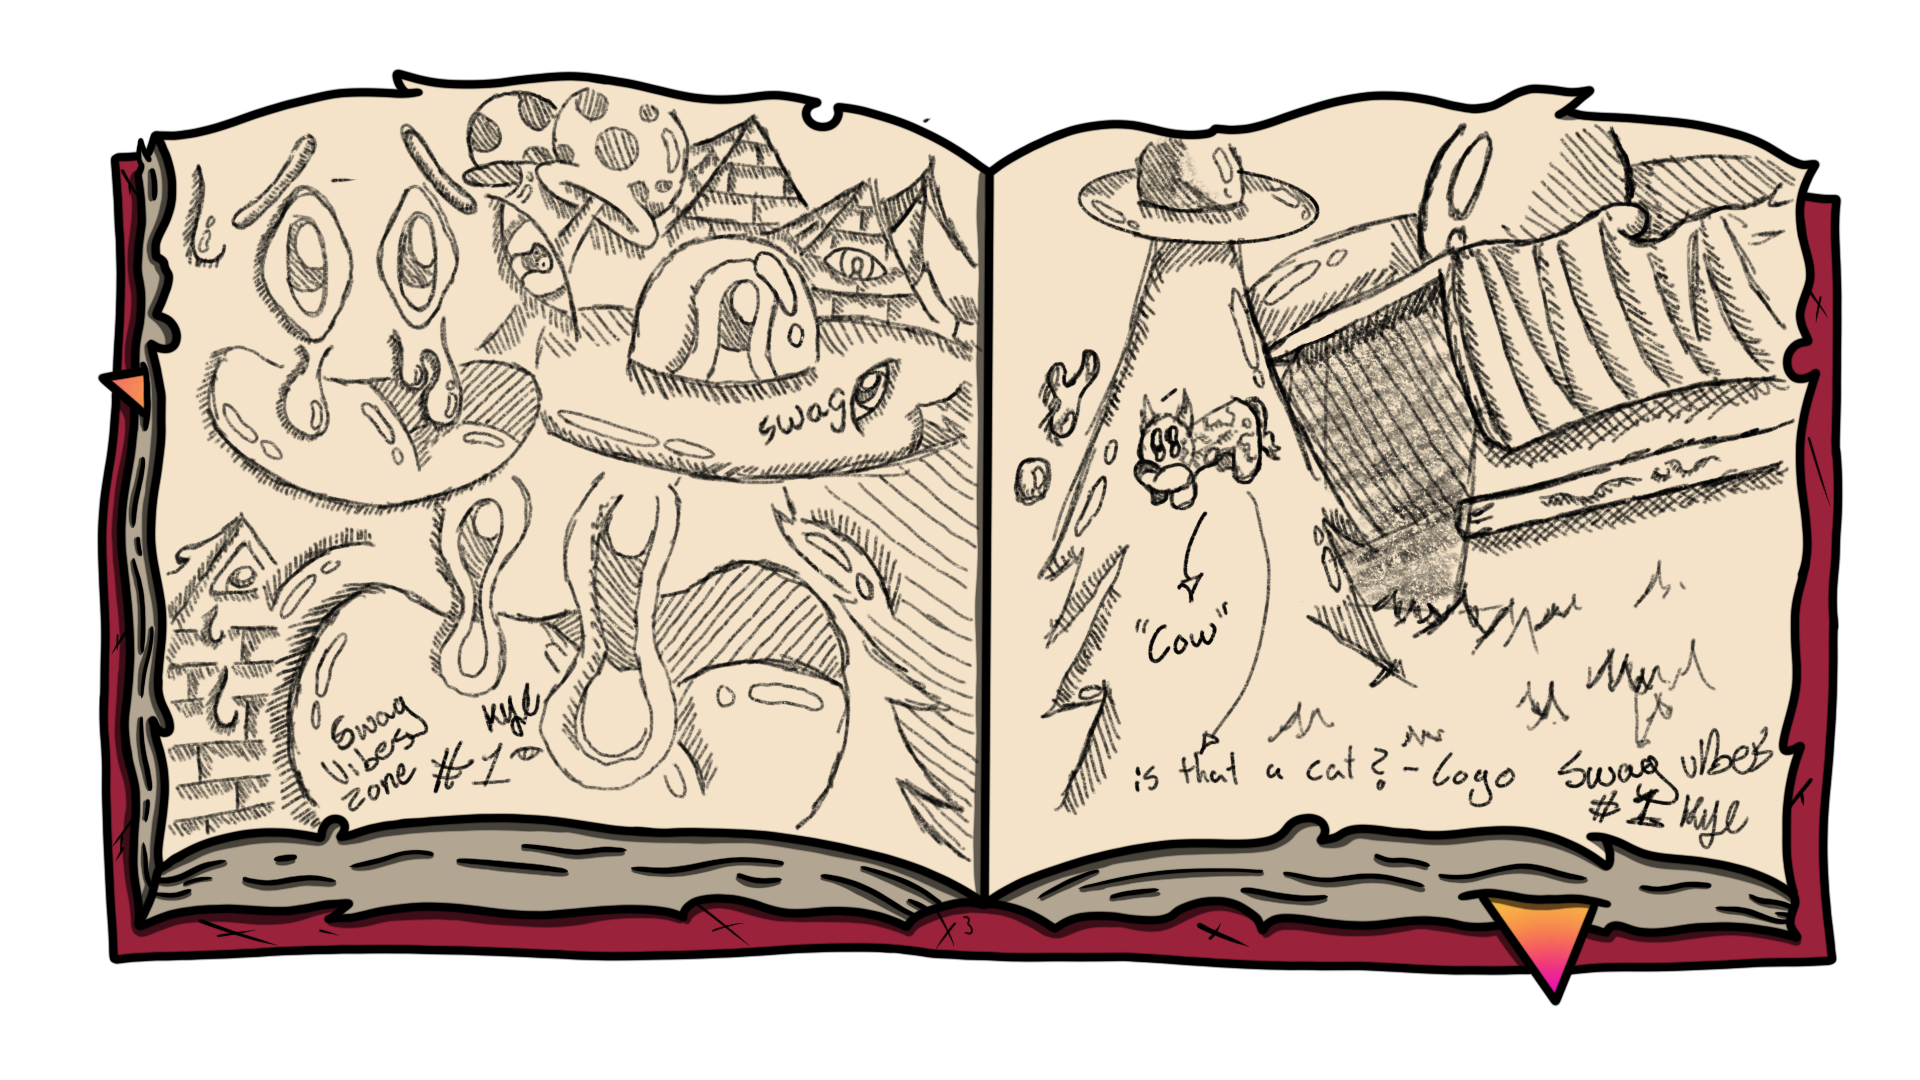 swag
Swag
Vibes
zone
#1
Kyle
"Cow"
is that a cat? - Logo
Swag vibes
#1 Kyle
3